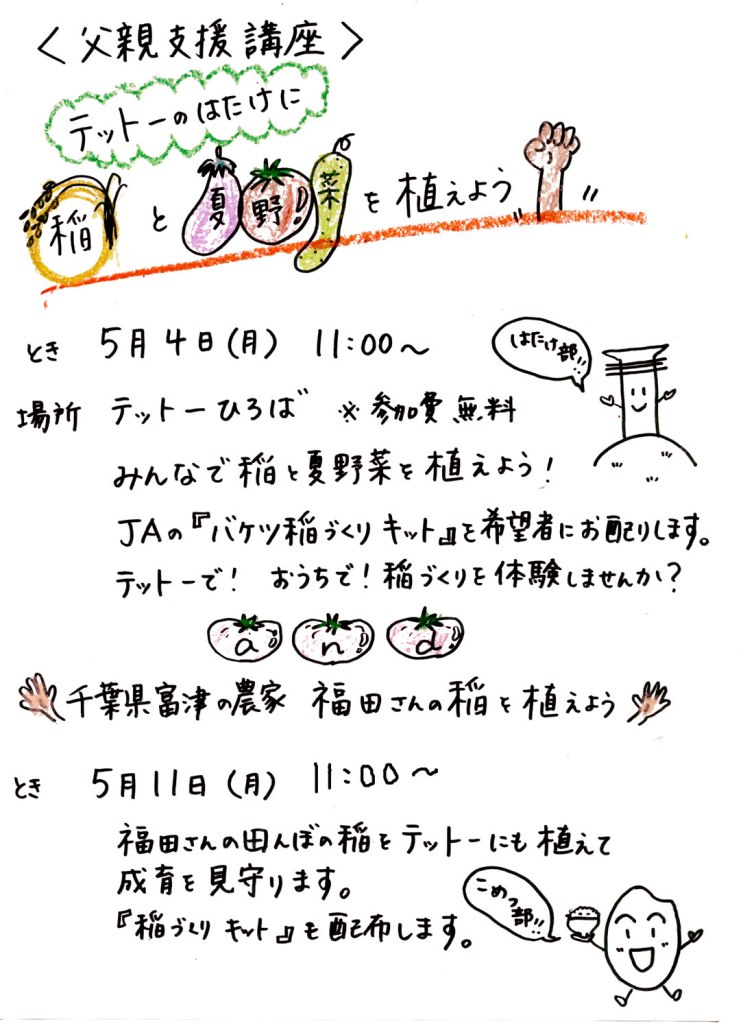 〈父親支援講座〉
テットーのはたけに
稲と夏野!菜を植えよう
とき 5月4日(月) 11:00〜
はたけ部!!
場所 テットーひろば ※参加費無料
みんなで稲と夏野菜を植えよう!
JAの『バケツ稲づくりキット』を希望者にお配りします。
テットーで! おうちで! 稲づくりを体験しませんか?
and
千葉県富津の農家 福田さんの稲を植えよう
とき 5月11日(月) 11:00〜
福田さんの田んぼの稲をテットーにも植えて
成育を見守ります。
『稲づくりキット』も配布します。
こめっ部!!